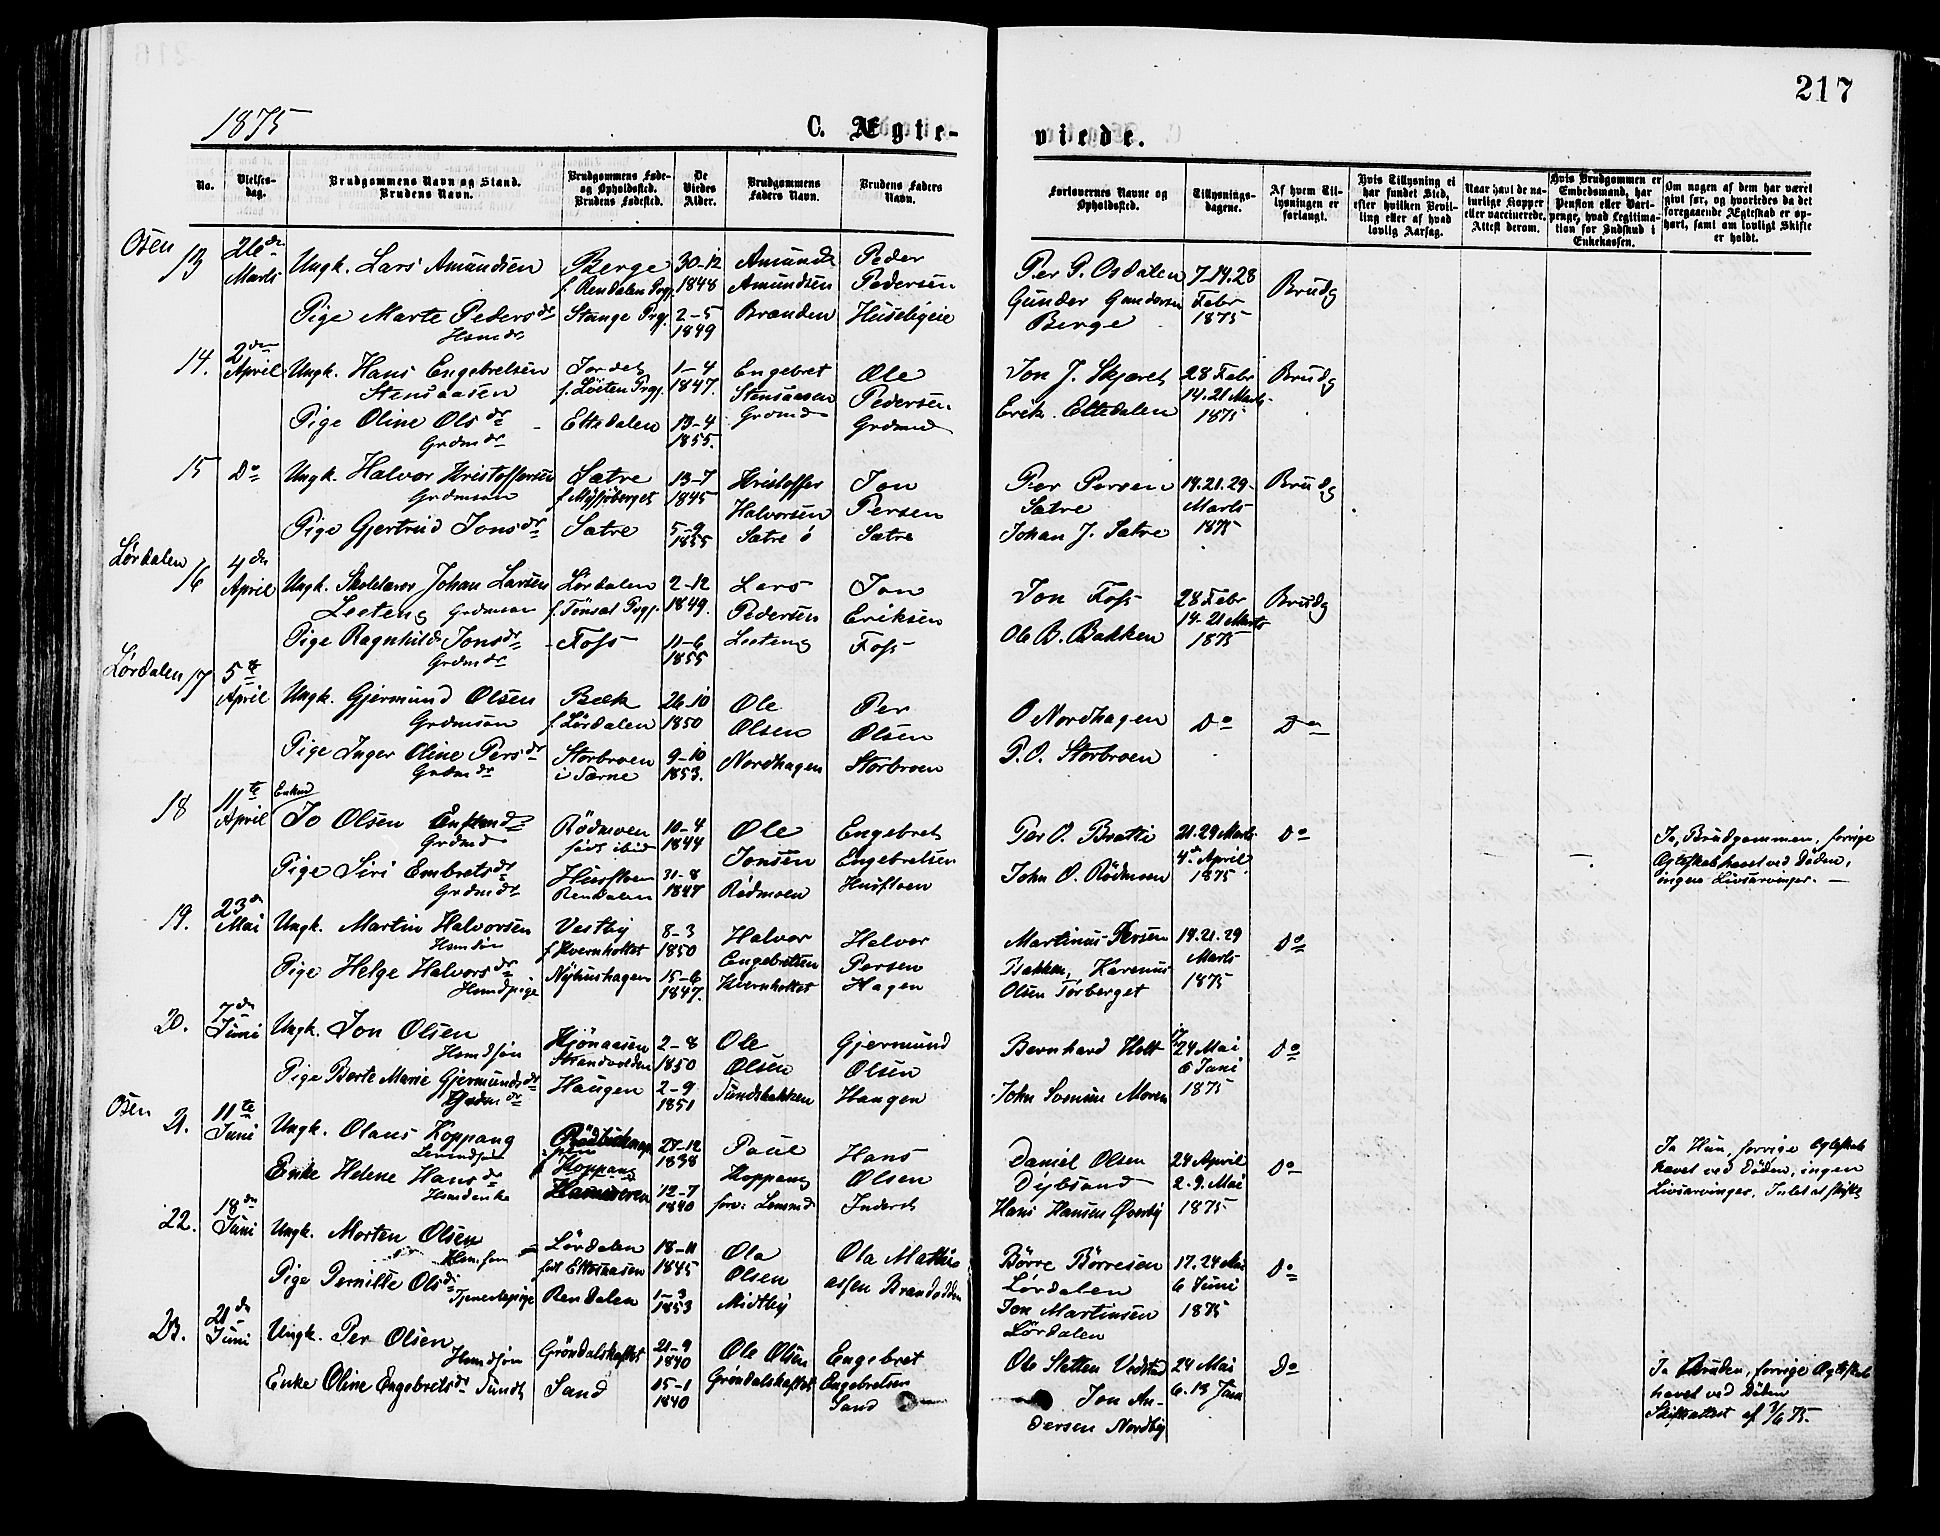 217
1875
C. Ægte-
viede.
No.
Vielses-
dag.
Brudgommens Navn og Stand.
Brudens Navn.
Brudgommens Føde-
og Opholdssted.
Brudens Fødested.
De
Viedes
Alder.
Brudgommens
Faders Navn.
Brudens Faders
Navn.
Forlovernes Navne og
Opholdssted.
Tillysnings-
dagene.
Af hvem Til-
lysningen er
forlangt.
Hvis Tillysning ei
har fundet Sted,
efter hvilken Bevil-
ling eller af hvad
lovlig Aarsag.
Naar havt de na-
turlige Kopper
eller vaccinerede.
Attest derom.
Hvis Brudgommen er
Embedsmand, har
Pension eller Vart-
penge, hvad Legitima-
tion for Indskud i
Enkekassen.
Om nogen af dem har været
gift før, og hvorledes da det
foregaaende Ægteskab er op-
hørt, samt om lovligt Skifte
er holdt.
Osen
13
26de
Marts
Ungk. Lars Amundsen
Pige Marte Pedersdr
Hsmdr
Berge
f. Rendalen Prgj.
Stange Prgj.
30-12
1848
2-5
1849
Amund
Amundsen
Brænden
Peder
Pedersen
Huseligeie
Per P. Osdalen
Gunder Gundersen
Berge
7-14.28
Febr
1875
Brudg
14.
2den
April
Ungk. Hans Engebretsen
Stensaasen
Pige Oline Olsdr
Grdmdr
Jordet
f. Løiten Prgj.
Ettedalen
1-4
1847.
13-4
1855.
Engebret
Stensaasen
Grdmd
Ole
Pedersen
Grdmd
Jon J. Skjæret
Erik Ettedalen
28 Febr
14.21 Marts
1875
Brudg
15
Do
Ungk. Halvor Kristoffersen
Grdmsøn
Pige Gjertrud Jonsdr
Sætre
Sætre
13-7
1845
5-9
1855
Kristoffer
Halvorsen
Sætre ø
Jon
Persen
Sætre
Per Persen
Sætre
Johan J. Sætre
14.21.29
Marts
1875
Brudg
Lørdalen
16
4de
April
Ungk. Skolelærer Johan Larsen
Leeteng Grdmsøn
Pige Ragnhild Jonsdr
Grdmdr
Lørdalen
f. Tønset Prgj.
Foss
2-12
1849.
11-6
1855
Lars
Pedersen
Leeteng
Jon
Eriksen
Foss
Jon Foss
Ole B. Bakken
28 Febr
14-21 Marts
1875
Brudg
Lørdalen
17
5te
April
Ungk. Gjermund Olsen
Grdmsøn
Pige Inger Oline Persdr
Grdmdr
Bæk
f. Lørdalen
Storbroen
i Særne
26-10
1850
9-10
1853.
Ole
Olsen
Nordhagen
Per
Olsen
Storbroen
O Nordhagen
P. O. Storbroen
Do
Do
18
11te
April
Enkmd
Jo Olsen Enkmd
Grdmd
Pige Siri Embretsdr
Grdmdr
Rødmoen
født ibid
Husfloen
Rendalen
10-4
1844
31-8
1847
Ole
Jonsen
Rødmoen
Engebret
Engebretsen
Husfloen
Per O. Bratli
John O. Rødmoen
21.29 Marts
4de April
1875
Do
Ja, Brudgommen, forrige
Egteskab hævet ved Døden,
ingen Livsarvinger. —
19.
23de
Mai
Ungk. Martin Halvorsen
Hsmdsøn
Pige Helge Halvorsdr
Hsmdpige
Vestby
f. Kvernholtet
Nyhushagen
8-3
1850
15-6
1847.
Halvor
Engebretsen
Kvernholtet
Halvor
Persen
Hagen
Martinus Persen
Bakken, Karenus
Olsen Tørberget
14.21.29
Marts
1875
Do
20.
7de
Juni
Ungk. Jon Olsen
Hsmdsøn
Pige Berte Marie Gjermundsdr
Grdmdr
Hjønaasen
Strandvolden
Haugen
2-8
1850
2-9
1851
Ole
Olsen
Sundsbakken
Gjermund
Olsen
Haugen
Bernhard Holt
John Moren
17
24 Mai
6 Juni
1875
Do
Osen
21.
11te
Juni
Ungk. Olaus Koppang
Enke Helene Hansdr
Hsmdenke
f Koppang
27-12
1838
12-7
1840
Paul
Koppang
forv:
Hans
Olsen
Daniel Olsen
Dybsund
Hans Hansen Øverby
24 April
2.9. Mai
1875
Do
Ja Hun, forrige Egteskab
hævet ved Døden, ingen
Livsarvinger,
22.
18de
Juni
Ungk. Morten Olsen
Hsmsøn
Pige Pernille Olsdr
Tjenestepige
Lørdalen
Rendalen
18-11
1845
1-3
1853
Ola
Olsen
Midtby
Ola Mathi-
assen Brandodden
Børre Børresen
Lørdalen
Jon Martinsen
Lørdalen
17.24 Mai
6 Juni
1875
Do
23.
21de
Juni
Ungk. Per Olsen
Hsmdsøn
Enke Oline Engebretsdr Sundt
Grøndalskoftet
Sand
21-9
1840
15-1
1840
Ole Olsen
Grøndalskoftet
Engebret
Engebretsen
Sand
Ole Sletten
Jon An-
dersen Nordby
24 Mai
6.13 Juni
Do
Ja Bruden, forrige Egteskab
hævet ved Døden
Skifteattest af 7/6 75.